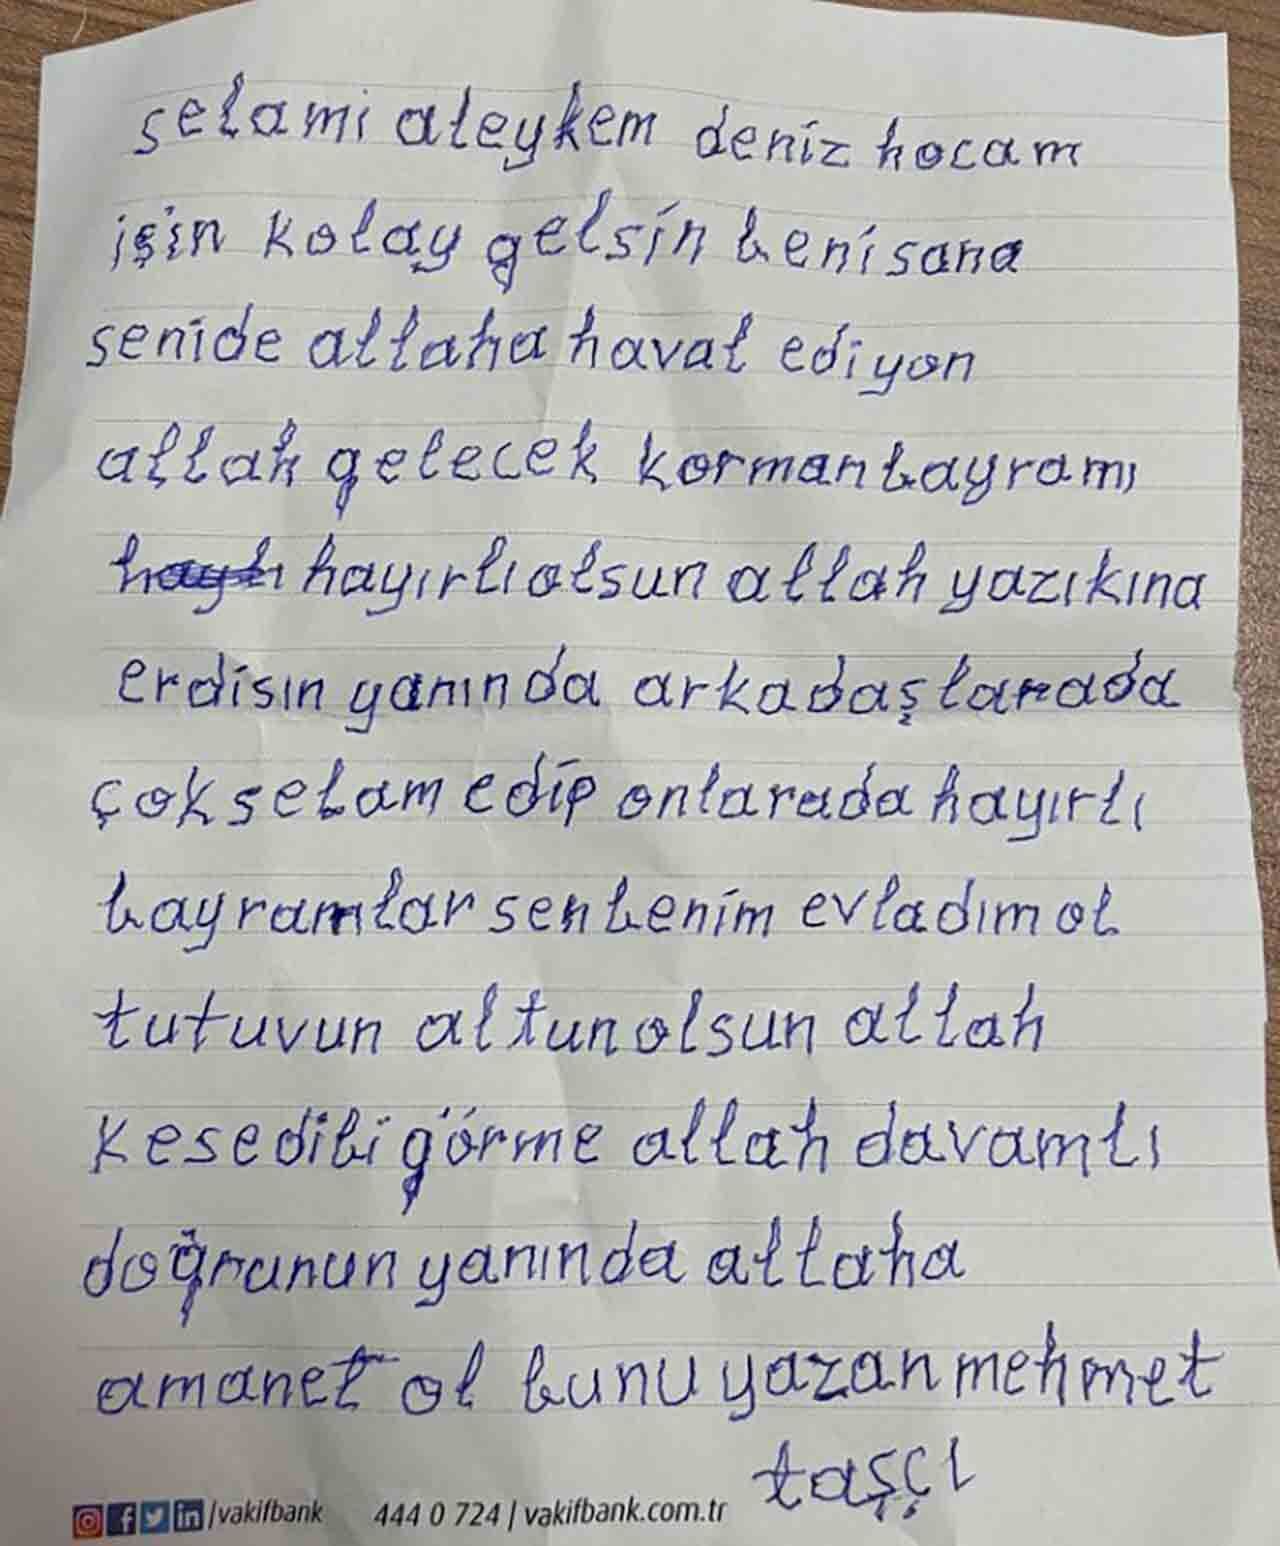 selami aleykem deniz hocam
işin kolay gelsin beni sana
senide allaha haval ediyon
allah gelecek korman bayramı
hayırlı olsun allah yazıkına
erdisin yanında arkadaşlarada
çok selam edip onlarada hayırlı
bayramlar sen benim evladım ol
tutuvun altun olsun allah
kese dibi görme allah davamlı
doğrunun yanında allaha
amanet ol bunu yazan mehmet
taşçı
/vakifbank 444 0 724 | vakifbank.com.tr